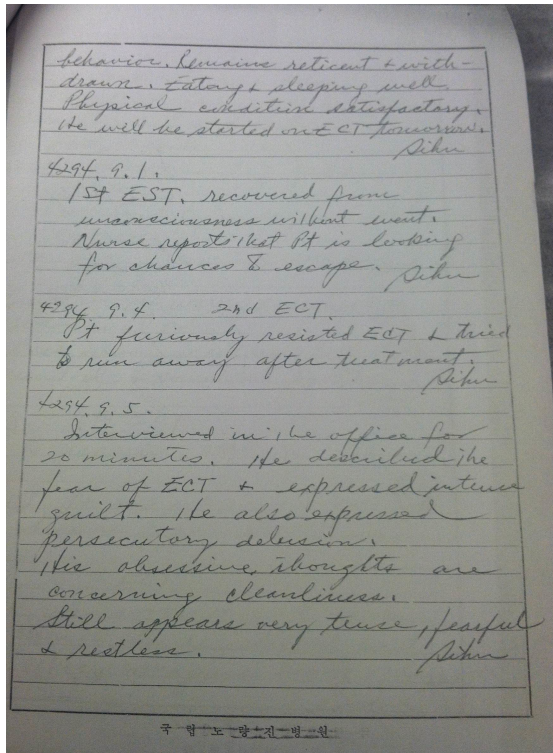 behavior. Remains reticent & with-
drawn. Eating & sleeping well.
Physical condition satisfactory.
He will be started on ECT tomorrow.
Sihn
4294. 9. 1.
1st EST. recovered from
unconsciousness without event.
Nurse reports that Pt is looking
for chances to escape. Sihn
4294 9. 4. 2nd ECT.
Pt furiously resisted ECT & tried
to run away after treatment.
Sihn
4294. 9. 5.
Interviewed in the office for
20 minutes. He described the
fear of ECT & expressed intense
guilt. He also expressed
persecutory delusion.
His obsessive thoughts are
concerning cleanliness.
Still appears very tense, fearful
& restless. Sihn
국립노량진병원